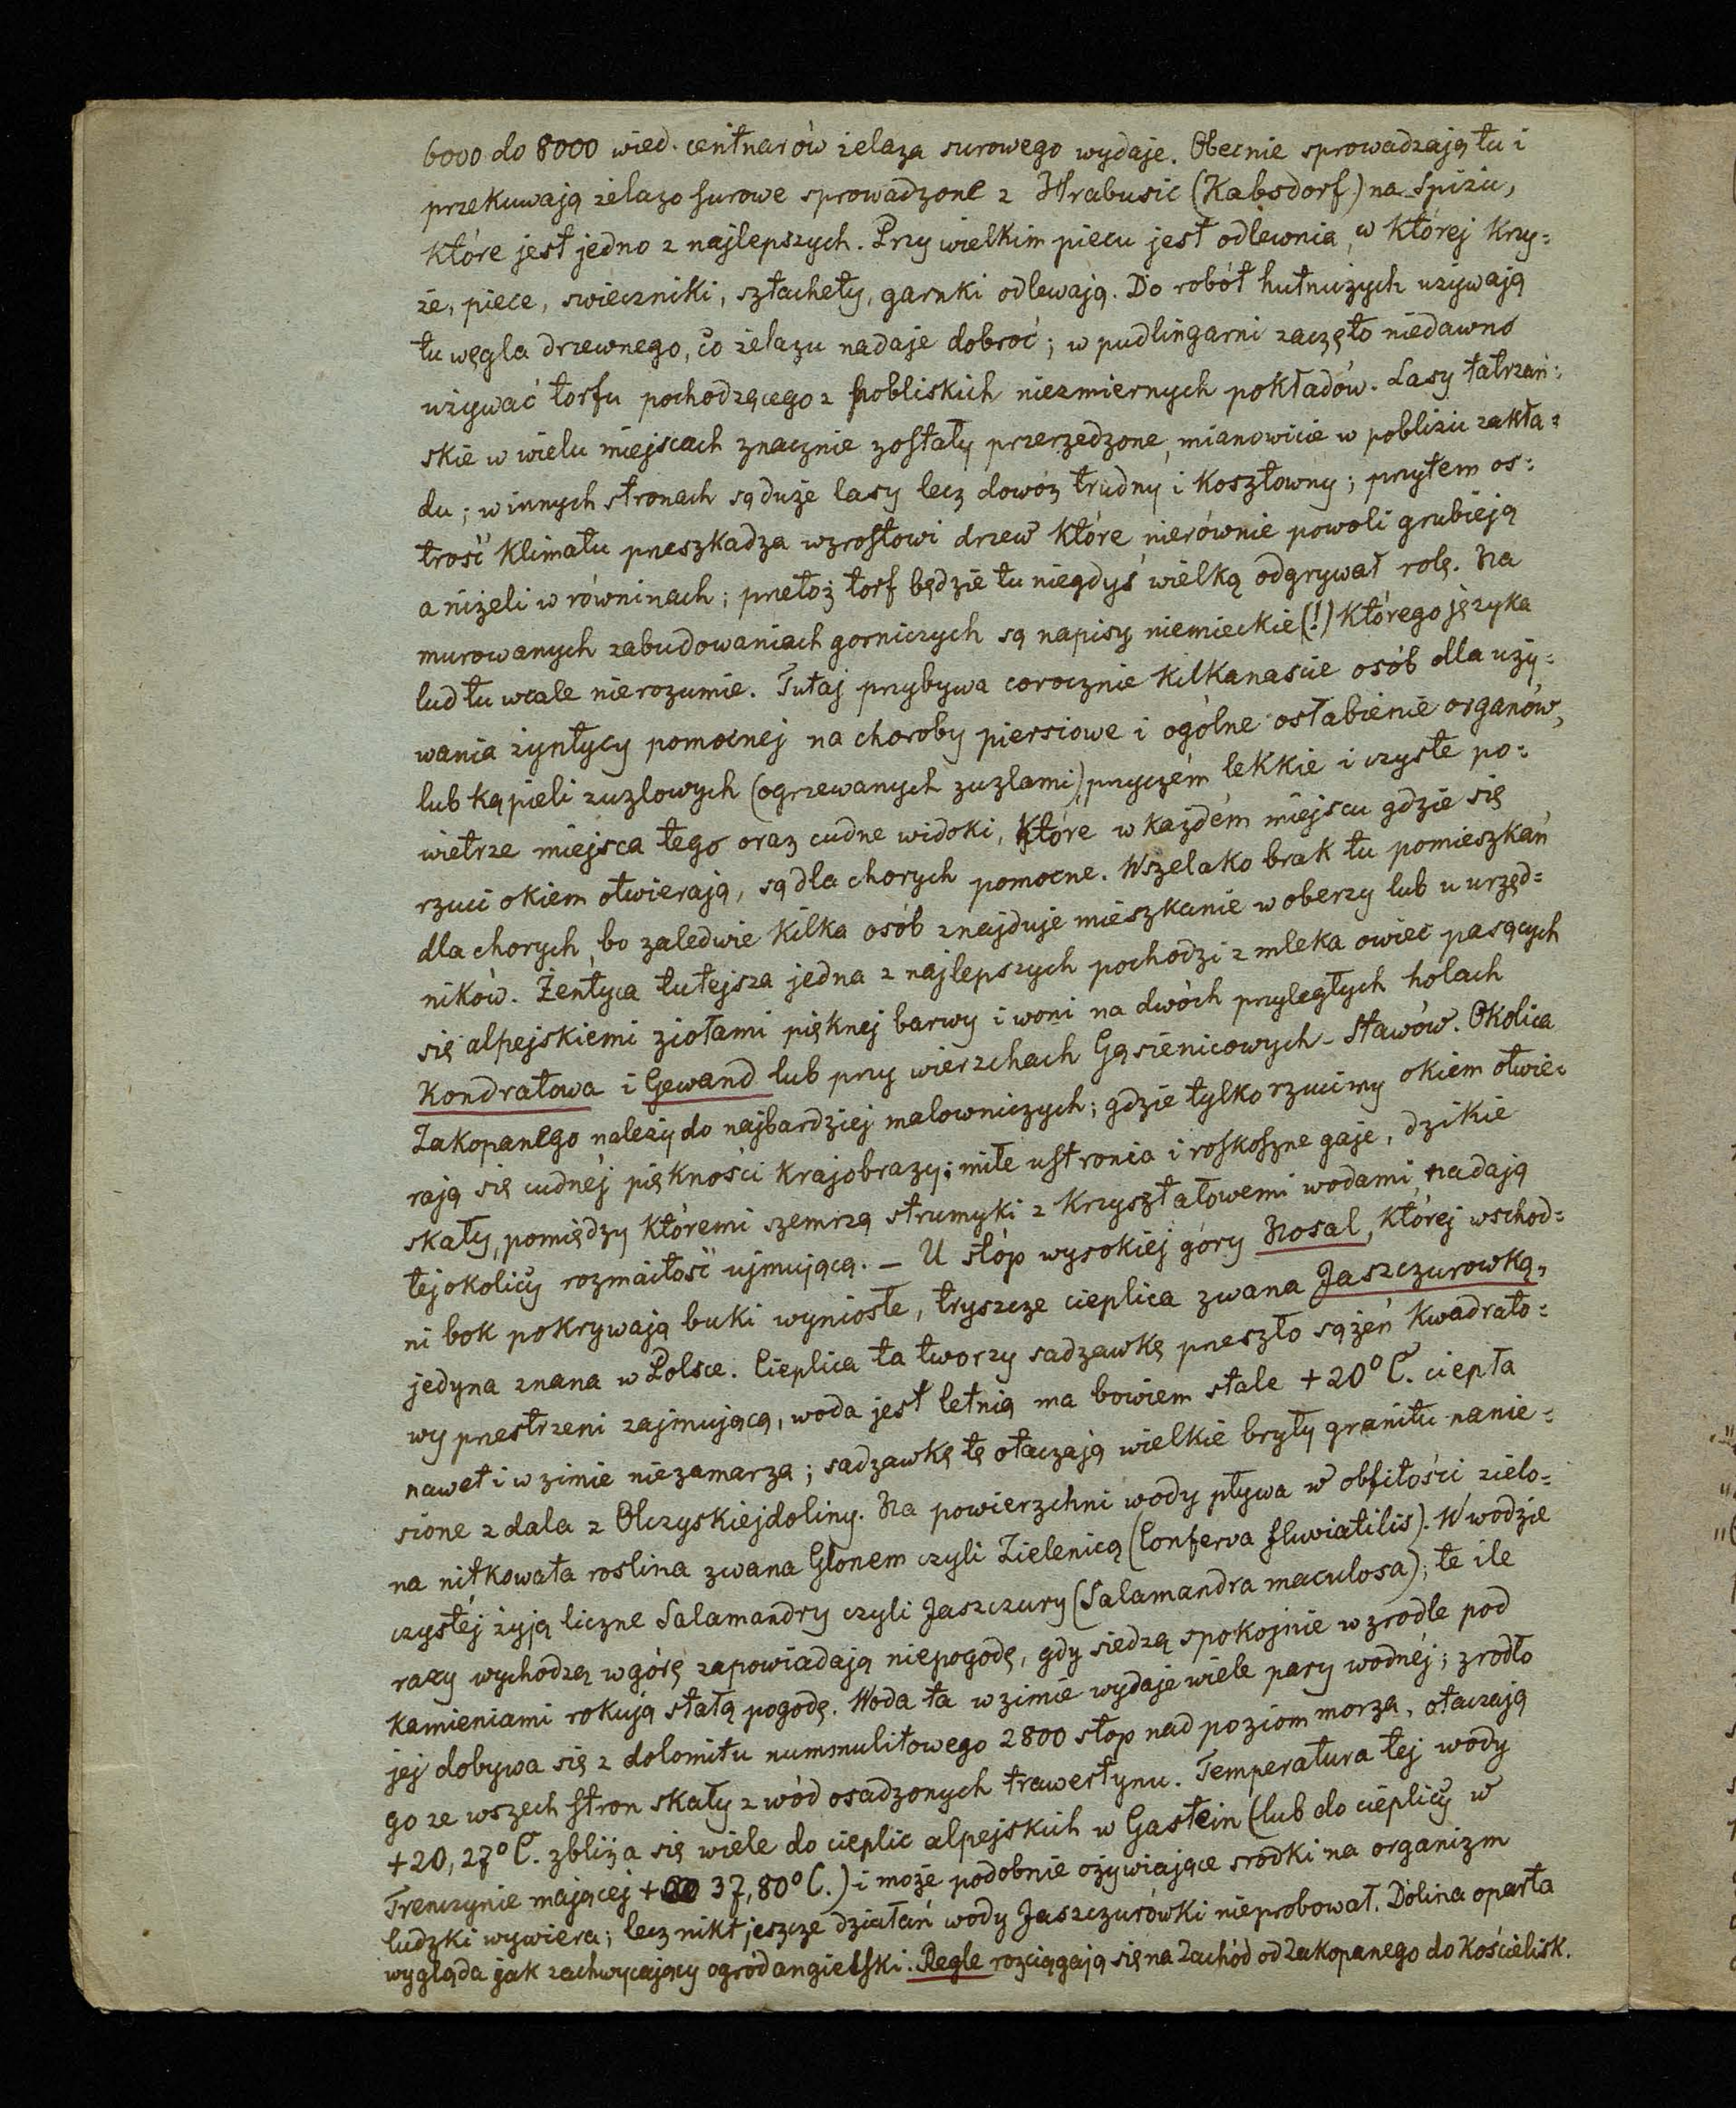 6000 do 8000 wied. centnarów żelaza surowego wydaje. Obecnie sprowadzają tu i
przekuwają żelazo surowe sprowadzone z Hrabusic (Kabsdorf) na Spiżu,
które jest jedno z najlepszych. Przy wielkim piecu jest odlewnia, w której krzy=
że, piece, swieczniki, sztachety, garnki odlewają. Do robót hutniczych używają
tu węgla drzewnego, co żelazu nadaje dobroć; w pudlingarni zaczęto niedawno
używać torfu pochodzącego z pobliskich niezmiernych pokładów. Lasy tatrzań=
skie w wielu miejscach znacznie zostały przerzedzone, mianowicie w pobliżu zakła=
du; w innych stronach są duże lasy lecz dowóz trudny i kosztowny; przytem os=
trość klimatu przeszkadza wzrostowi drzew które nierównie powoli grubieją
aniżeli w równinach; przetoż torf będzie tu niegdyś wielką odgrywał rolę. Na
murowanych zabudowaniach gorniczych są napisy niemieckie (!) którego języka
lud tu wcale nierozumie. Tutaj przybywa corocznie kilkanascie osób dla uży=
wania żyntycy pomocnej na choroby piersiowe i ogólne osłabienie organów,
lub kąpieli zuzlowych (ogrzewanych zuzlami) przyczém lekkie i czyste po=
wietrze miejsca tego oraz cudne widoki, które w każdém miejscu gdzie się
rzuci okiem otwierają, są dla chorych pomocne. Wszelako brak tu pomieszkań
dla chorych, bo zaledwie kilka osób znajduje mieszkanie w oberzy lub u urzęd=
ników. Żentyca tutejsza jedna z najlepszych pochodzi z mleka owiec pasących
się alpejskiemi ziołami pięknej barwy i woni na dwóch przyległych holach
Kondratowa i Gewand lub przy wierzchach Gąsienicowych-Stawów. Okolica
Zakopanego należy do najbardziej malowniczych; gdzie tylko rzucimy okiem otwie=
rają się cudnéj piękności krajobrazy; miłe ustronia i roskoszne gaje, dzikie
skały, pomiędzy któremi szemrzą strumyki z krzyształowemi wodami, nadają
tej okolicy rozmaitość ujmującą. — U stóp wysokiej góry Nosal, której wschod=
ni bok pokrywają buki wyniosłe, tryszcze cieplica zwana Jaszczurowką,
jedyna znana w Polsce. Cieplica ta tworzy sadzawkę przeszło sążeń kwadrato=
wy przestrzeni zajmującą, woda jest letnią ma bowiem stale +20°C. ciepła
nawet i w zimie niezamarza; sadzawkę tę otaczają wielkie bryły granitu nanie=
sione z dala z Olczyskiej doliny. Na powierzchni wody pływa w obfitości zielo=
na nitkowata roslina zwana Glonem czyli Zielenicą (Conferva fluviatilis). W wodzie
czystéj żyją liczne Salamandry czyli Jaszczury (Salamandra maculosa); te ile
razy wychodzą w górę zapowiadają niepogodę, gdy siedzą spokojnie w zrodle pod
kamieniami rokują stałą pogodę. Woda ta w zimie wydaje wiele pary wodnéj; zrodło
jej dobywa się z dolomitu nummulitowego 2800 stop nad poziom morza, otaczają
go ze wszech stron skały z wód osadzonych trawertynu. Temperatura tej wody
+20,27°C. zbliża się wiele do cieplic alpejskich w Gastein (lub do cieplicy w
Trenczynie mającej + 37,80°C.) i może podobnie ożywiające srodki na organizm
ludzki wywiera; lecz nikt jeszcze działań wody Jaszczurówki nieprobował. Dolina oparta
wygląda jak zachwycający ogród angielski. Regle rozciągają się na Zachód od Zakopanego do Kościelisk.